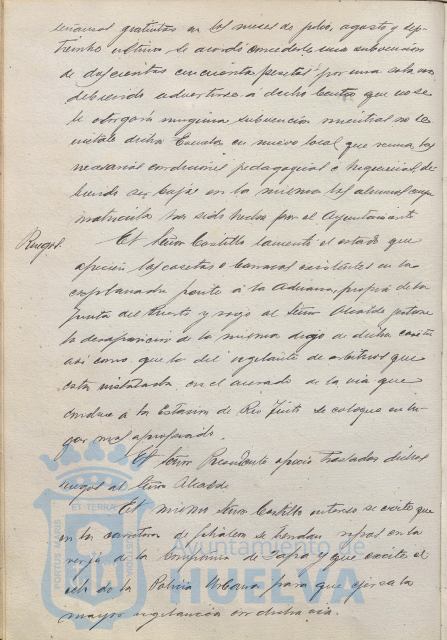 señanzas gratuitas en los meses de julio, agosto y sep-
tiembre últimos, se acordó concederle una subvención
de doscientas cincuenta pesetas por una sola vez,
debiendo advertirse a dicho Centro que no se
le otorgará ninguna subvención mientras no se
instale dicha Escuela en nuevo local que reuna las
necesarias condiciones pedagógicas e higiénicas, de-
biendo ser bajas en la misma los alumnos cuya
matrícula ha sido hecha por el Ayuntamiento
Ruegos.
El Señor Castillo lamentó el estado que
ofrecían las casetas o barracas existentes en la
explanada frente a la Aduana, propia de la
Junta del Puerto y rogó al Señor Alcalde
la desaparición de la misma de dicha caseta
así como que la del vigilante de arbitrios que
está instalada en el acerado de la vía que
conduce a la Estación de Rio Tinto se coloque en lu-
gar más apropiado.
El Señor Presidente ofreció trasladar dichos
ruegos al Señor Alcalde
El mismo Señor Castillo interesó se evite que
en las se tiendan ropas en la
verja de la Compañía de y que excite el
celo de la Policía Urbana para que ejerza la
mayor vigilancia en dicha vía.
PORTUS MARIS
ET TERRAE
CUSTODIA
Ayuntamiento de
HUELVA